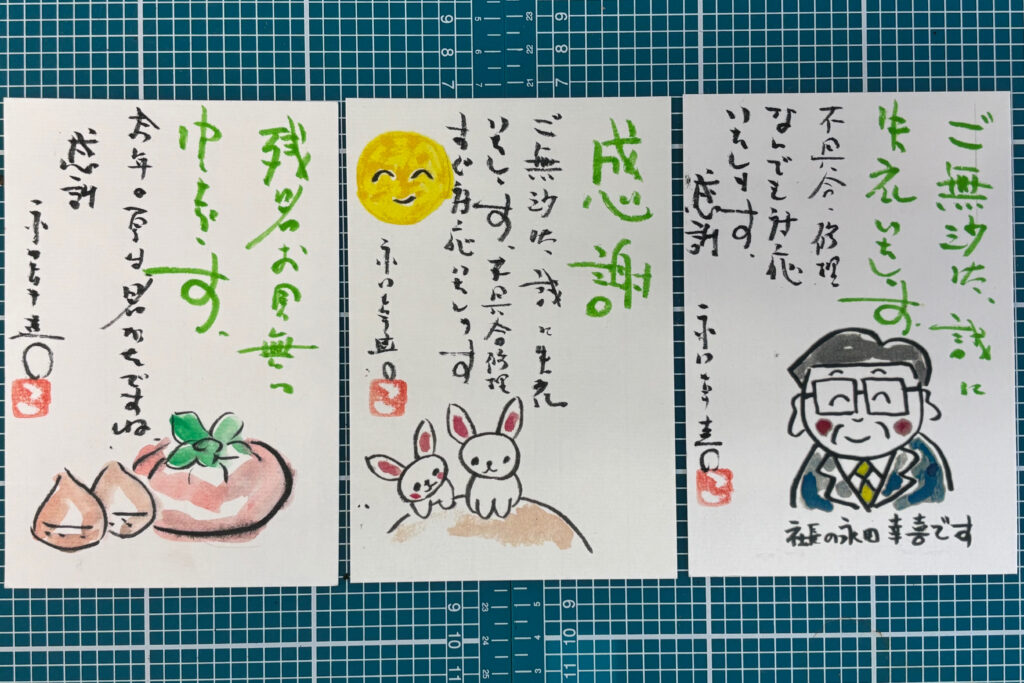 ご無沙汰、誠に
失礼いたします。
不具合、修理
なんでも対応
いたします。
感謝
社長の永田幸喜です
感謝
ご無沙汰、誠に失礼
いたします。不具合修理
すぐ対応いたします
残暑お見舞い
申します、
今年の夏は、暑かったですね。
感謝